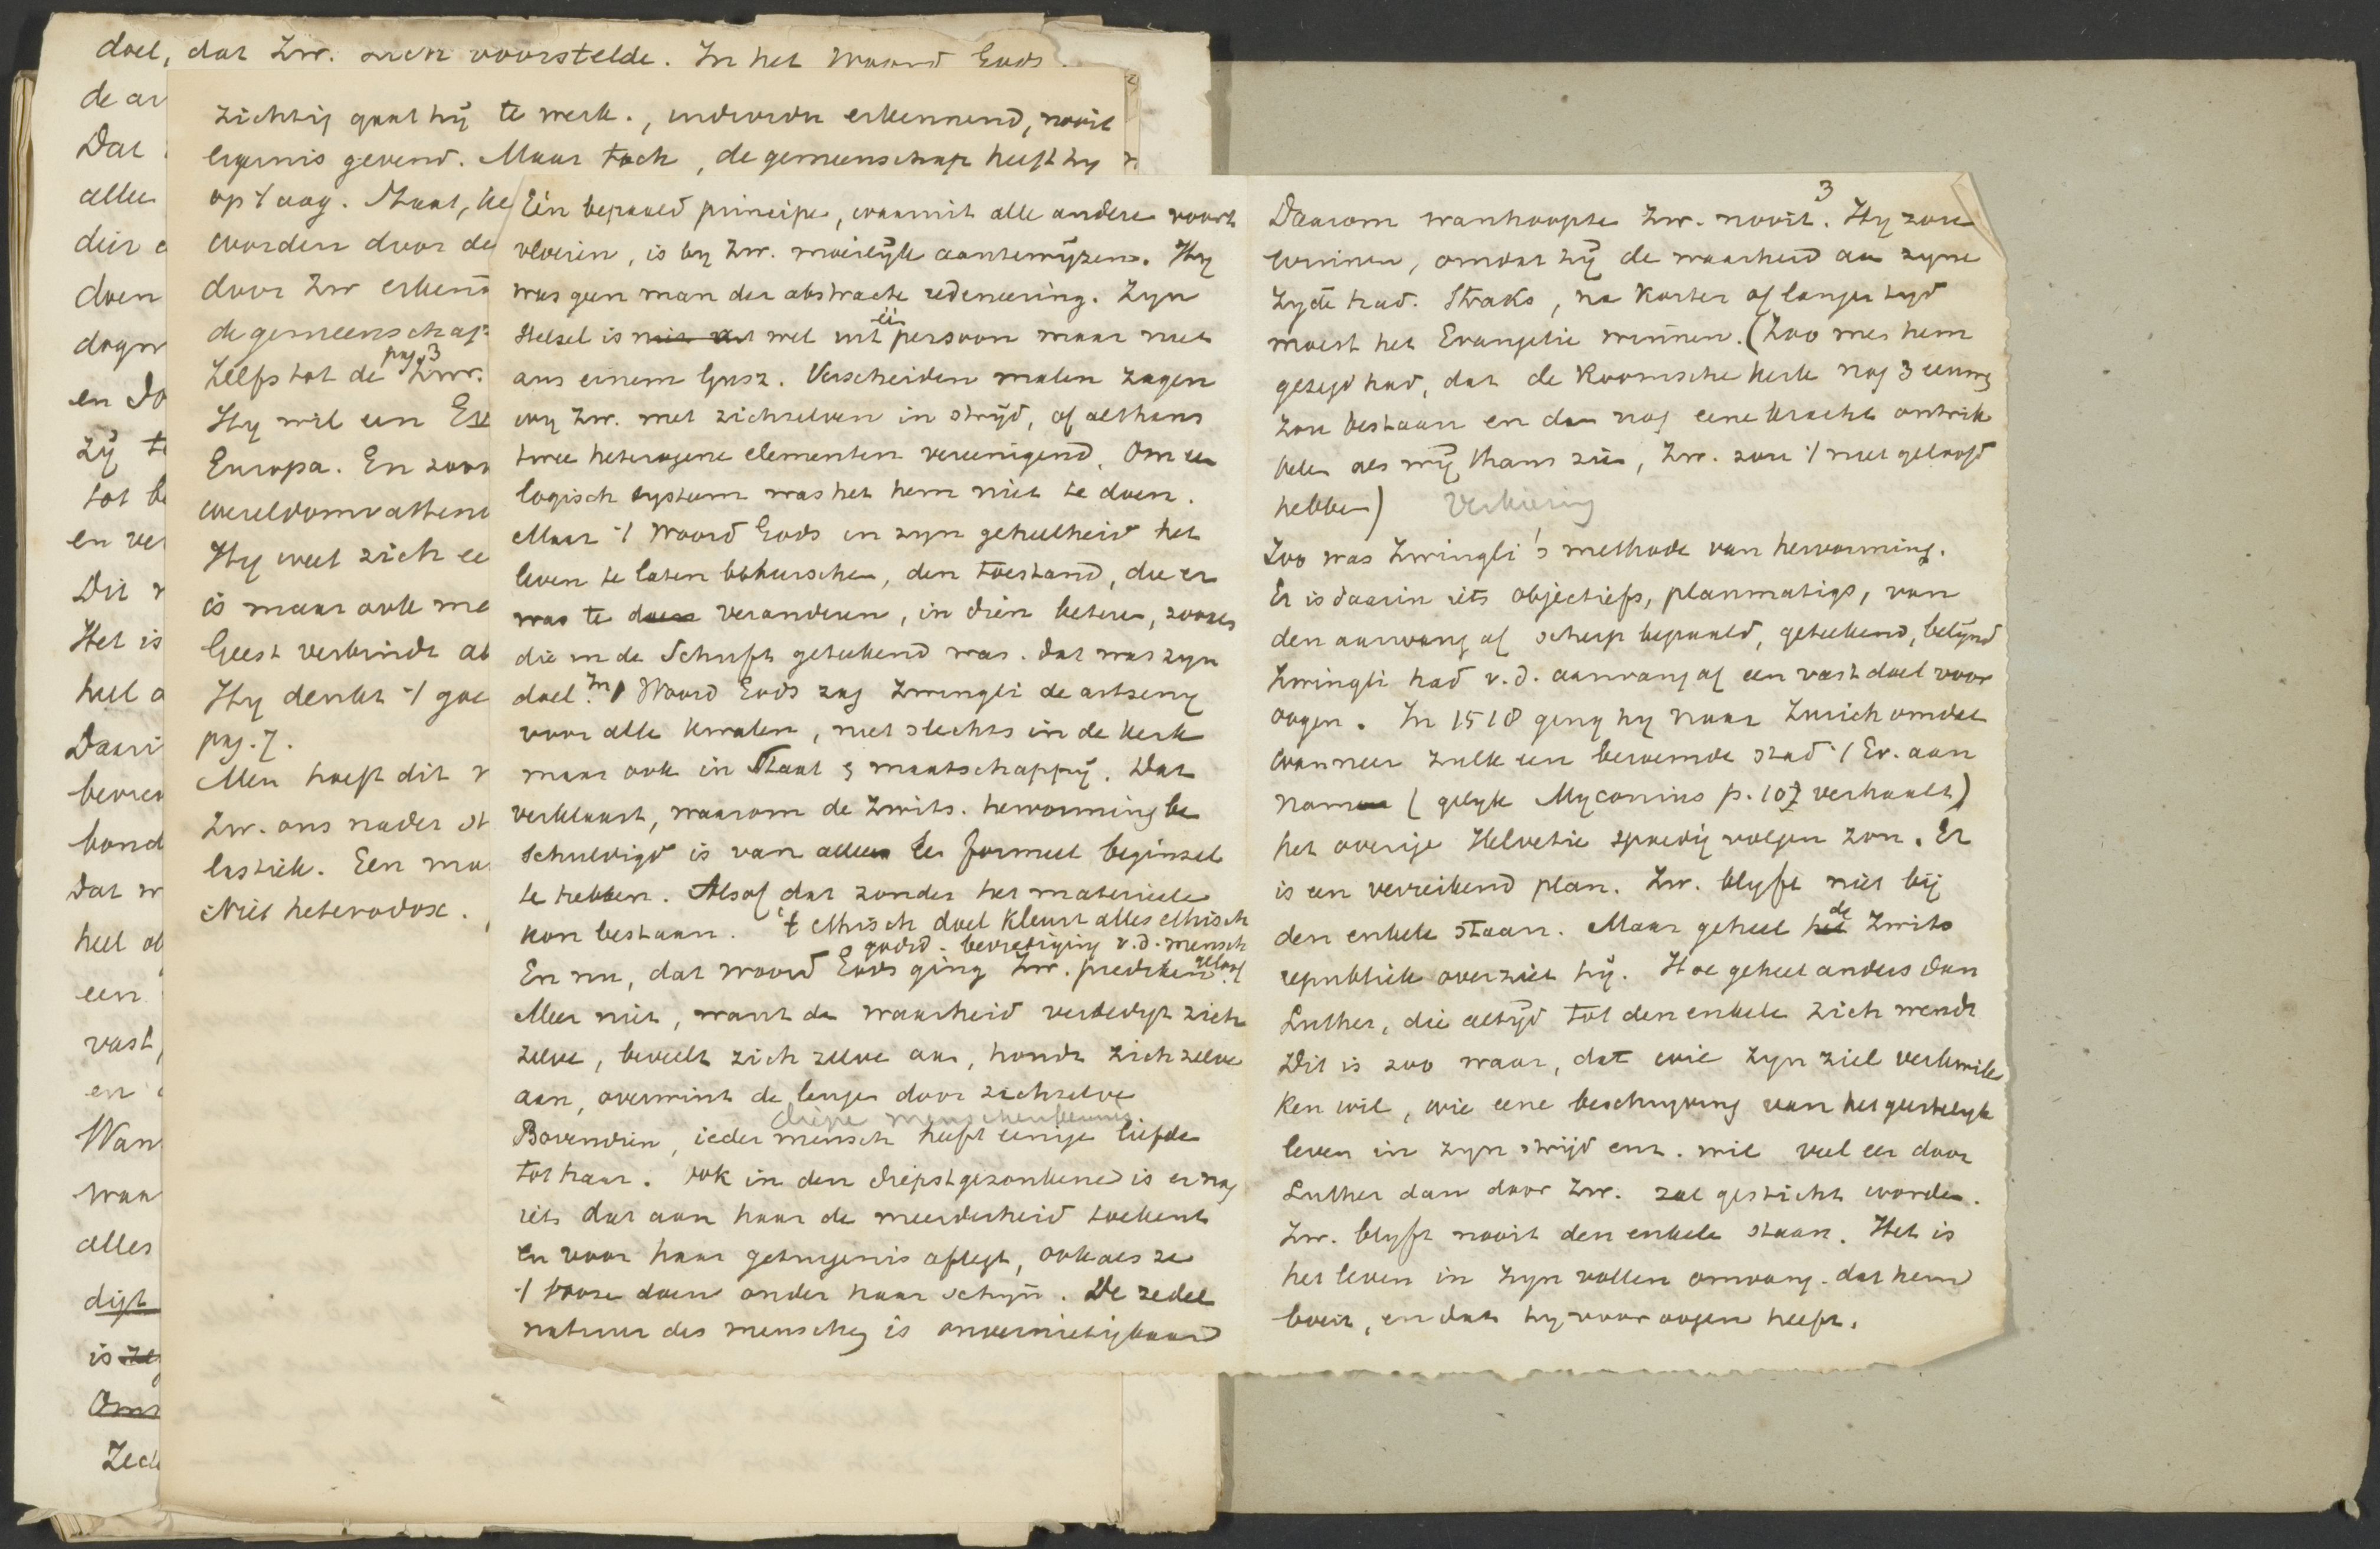 doel, dat Zw. zich voorstelde. In het Woord Gods
de ar
Dat
alle
die
doen
dogm
en do
zij t
tot b
en ver
Dit
Het is
heel
Daari
bevred
hond
Dat
heel
een
vast,
en
Wan
waar
alles
digt
is
Om
Zed
zichtig gaat hij te werk., erkennend, nooit
ergernis gevend. Maar toch, de gemeenschap heeft hy
op 't oog. Staat, ke
worden door de
door Zw erkend
de gemeenschap
pag. 3
Zelfs tot de Zw.
Hy wil een
Europa. En zoo
wereldomvattend
Hy weet zich ee
is maar ook me
Geest verbindt al
Hy denkt 't goe
pag. 7.
Men hoeft dit
Zw. ons nader st
lastiek. Een ma
Niet heterodox.
Eén bepaald principe, waaruit alle andere voort
vloeien, is by Zw. moeilijk aantewijzen. Hy
was geen man der abstracte redeneering. Zyn
Stelsel is niet uit wel uit één persoon maar niet
aus einem Gusz. Verscheiden malen zagen
wy Zw. met zichzelven in strijd, of althans
twee heterogene elementen vereenigend. Om een
logisch systeem was het hem niet te doen.
Maar 't Woord Gods in zyn geheelheid het
leven te laten beheerschen, den toestand, die er
was te doen veranderen, in dien beteren, zooals
die in de Schrift geteekend was. dat was zyn
doel. In 't Woord Gods zag Zwingli de artseny
voor alle kwalen, niet slechts in de kerk
maar ook in Staat & maatschappij. Dat
verklaart, waarom de Zwits. hervorming be
schuldigd is van alleen een formeel beginsel
te hebben. Alsof dat zonder het materieele
kon bestaan. 't ethisch doel kleurt alles ethisch
godsd. bevrediging v.d. mensch
En nu, dat woord Gods ging Zw. prediken. geloof
Meer niet, want de waarheid verdedigt zich
zelve, beveelt zich zelve aan, houdt zich zelve
aan, overwint de leugen door zichzelve
diepe menschenkennis.
Bovendien, ieder mensch heeft eenige liefde
tot haar. ook in den diepstgezonkene is er nog
iets dat aan haar de meerderheid toekent
en voor haar getuigenis aflegt, ook als ze
't booze doen onder haar schijn. De zedel
natuur des menschen is onvernietigbaar
3
Daarom wanhoopte Zw. nooit. Hy zou
winnen, omdat hij de waarheid aan zyne
zyde had. Straks, na korter of langer tyd
moest het Evangelie winnen. (Zoo men hem
gezegd had, dat de Roomsche kerk nog 3 eeuwen
zou bestaan en dan nog eene kracht ontwik
kelen als wij thans zien, Zw. zou 't niet geloofd
hebben) Verkiezing
Zoo was Zwingli's methode van hervorming.
Er is daarin iets objectiefs, planmatigs, van
den aanvang af scherp bepaald, geteekend, belijnd
Zwingli had v.d. aanvang af een vast doel voor
oogen. In 1518 ging hy naar Zurich omdat
wanneer zulk een beroemde stad 't Ev. aan
nam (gelyk Myconius p. 107 verhaalt)
het overige Helvetie spoedig volgen zou. Er
is een verreikend plan. Zw. blyft niet bij
den enkele staan. Maar geheel het de Zwits
republiek overziet hij. Hoe geheel anders dan
Luther, die altijd tot den enkele zich wendt
Dit is zoo waar, dat wie zyn ziel verkwik
ken wil, wie eene beschryving van het geestelyk
leven in zyn strijd enz. wil veel eer door
Luther dan door Zw. zal gesticht worden.
Zw. blyft nooit den enkele staan. Het is
het leven in zyn vollen omvang. dat hem
boeit, en dat hy voor oogen heeft.